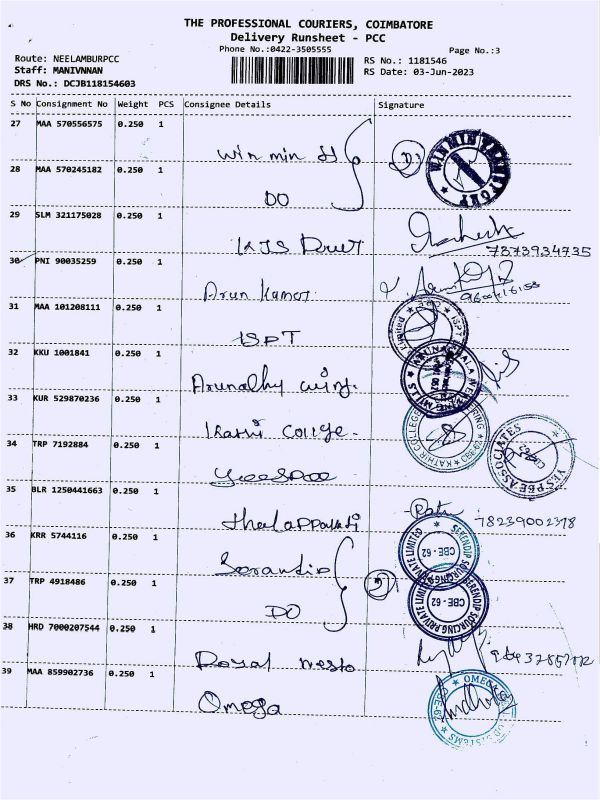 THE PROFESSIONAL COURIERS, COIMBATORE
Delivery Runsheet - PCC
Phone No.:0422-3505555
Page No.:3
Route: NEELAMBURPCC
Staff: MANIVNNAN
DRS No.: DCJB118154603
RS No.: 1181546
RS Date: 03-Jun-2023
S No Consignment No Weight PCS Consignee Details Signature
27 MAA 570556575 0.250 1
Win min
28 MAA 570245182 0.250 1
DO
29 SLM 321175028 0.250 1
KJS
7873934735
30 PNI 90035259 0.250 1
Arun Kumar
31 MAA 101208111 0.250 1
ISPT
ISPT
Limited
32 KKU 1001841 0.250 1
MILLS
33 KUR 529870236 0.250 1
Kathir College
KATHIR COLLEGE
34 TRP 7192884 0.250 1
YES PEE ASSOCIATES
35 BLR 1250441663 0.250 1
36 KRR 5744116 0.250 1
SERENDIP SOURCING PRIVATE LIMITED
CBE - 62
37 TRP 4918486 0.250 1
DO
SERENDIP SOURCING PRIVATE LIMITED
CBE - 62
38 HRD 7000207544 0.250 1
Royal
39 MAA 859902736 0.250 1
Omega
OMEGA
SYSTEMS